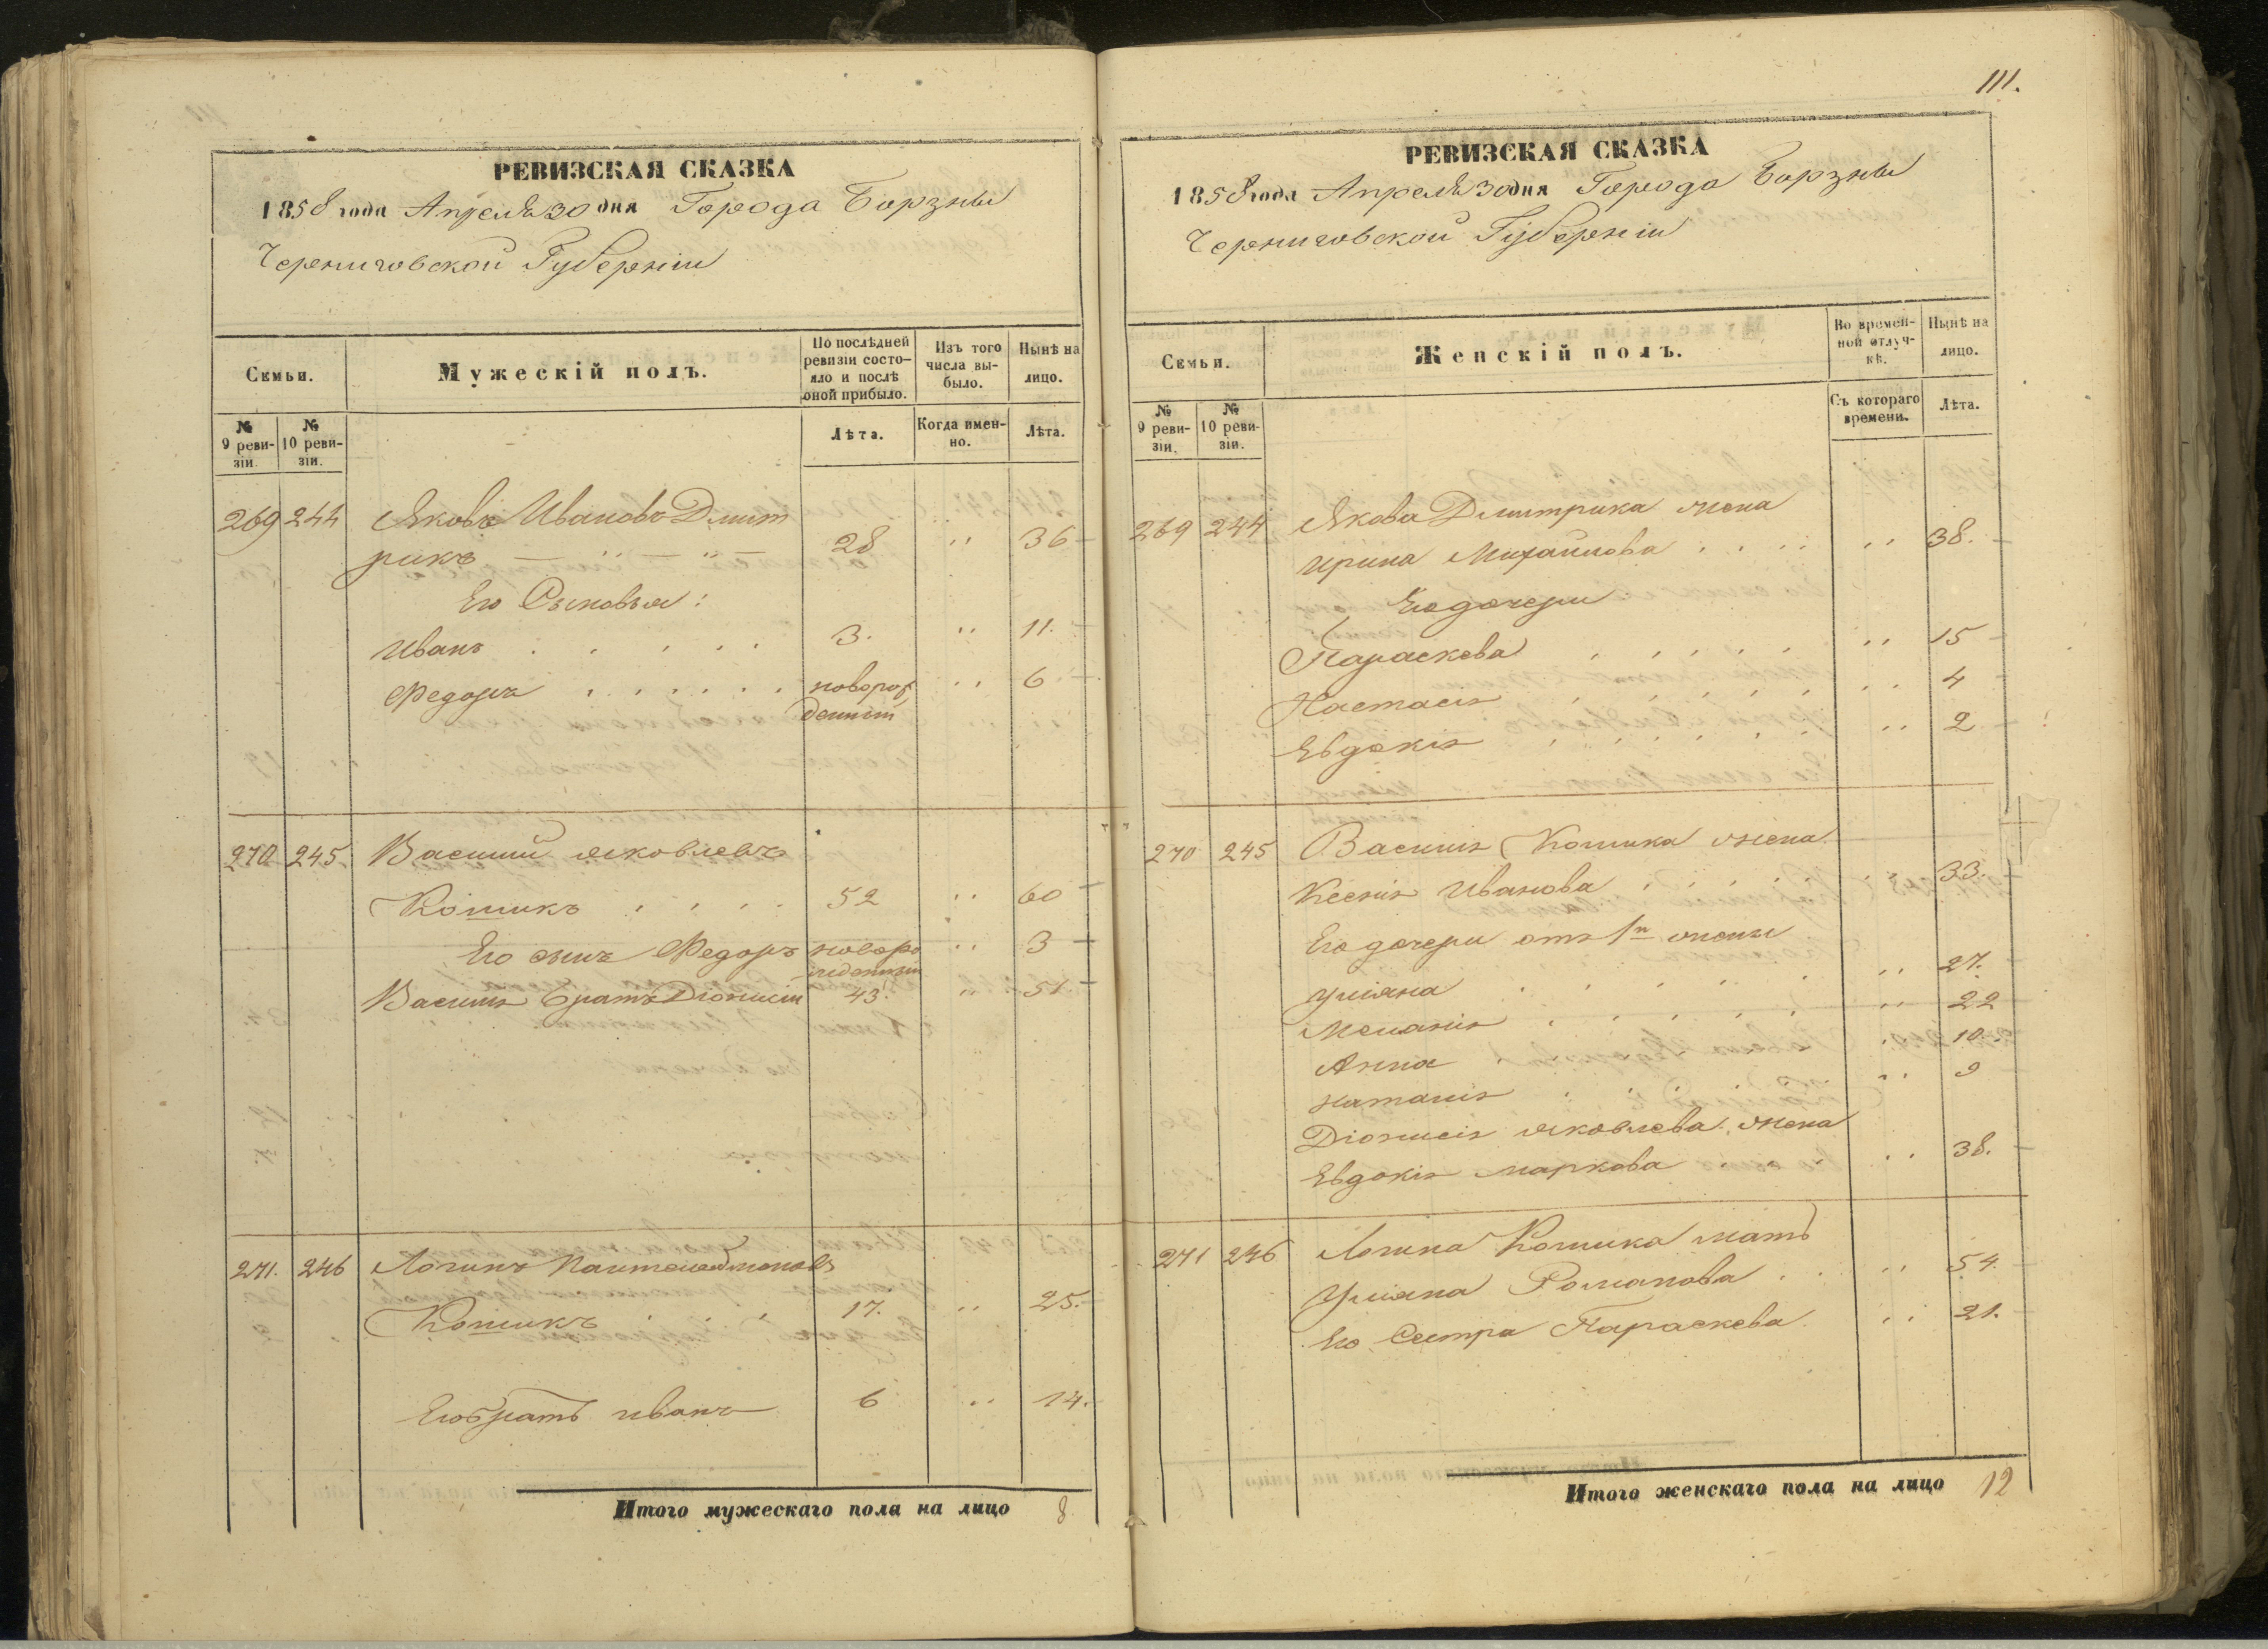 РЕВИЗСКАЯ СКАЗКА
1858 года Апреля 30 дня Города Борзны
Черниговской Губерніи
Семьи.
Мужескій полъ.
По послѣдней ревизіи состояло и послѣ оной прибыло.
Изъ того числа выбыло.
Нынѣ на лицо.
№ 9 ревизіи.
№ 10 ревизіи.
Лѣта.
Когда именно.
Лѣта.
269 244 Яковъ Ивановъ Дмит
рикъ — " — " — 28 " 36
Его Сыновья:
Иванъ . . . . . 3. " 11.
Федоръ . . . . . . новорож " 6
денный
270 245. Василий Яковлевъ
Кошикъ . . . . 52 " 60
Его сынъ Федоръ новоро " 3
жденный
Василия братъ Діонисій 43. " 51
271. 246 Логинъ
Кошикъ . . . 17. " 25.
Его братъ иванъ 6 " 14.
Итого мужескаго пола на лицо 8
111.
РЕВИЗСКАЯ СКАЗКА
1858 года Апреля 30 дня Города Борзны
Черниговской Губерніи
Семьи.
Женскій полъ.
Во временной отлучкѣ.
Нынѣ на лицо.
№ 9 ревизіи.
№ 10 ревизіи.
Съ котораго времени.
Лѣта.
269 244 Якова Дмитрика жена
Ирина Михайлова . . . . " 38.
Его дочери
Параскева . . . . . " 15
Настасия . . . . . " 4
Евдокия . . . . . . " 2
270 245 Василия Кошика жена
Ксения Иванова . . . . " 33.
Его дочери отъ 1й жены
Улияна . . . . . " 27.
Мелания . . . . . " 22
Анна . . . . " 10
Наталия . . . . " 9
Діонисия Яковлева жена
Евдокия Маркова . . . " 38.
271 246 Логина Кошика мать
Улияна Романова . . " 54.
Его Сестра Параскева. " 21.
Итого женскаго пола на лицо 12